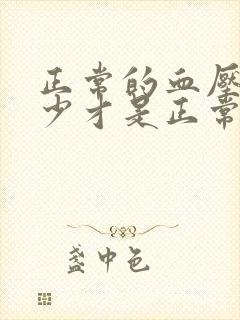 正常的血压
少才是正常
盏中色